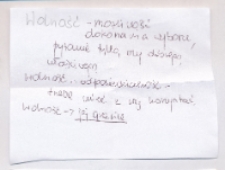 Wolność - możliwość
dokonania wyboru,
pytanie tylko czy dobrego,
właściwego
Wolność - odpowiedzialność -
trzeba umieć z niej korzystać
Wolność → jej granice